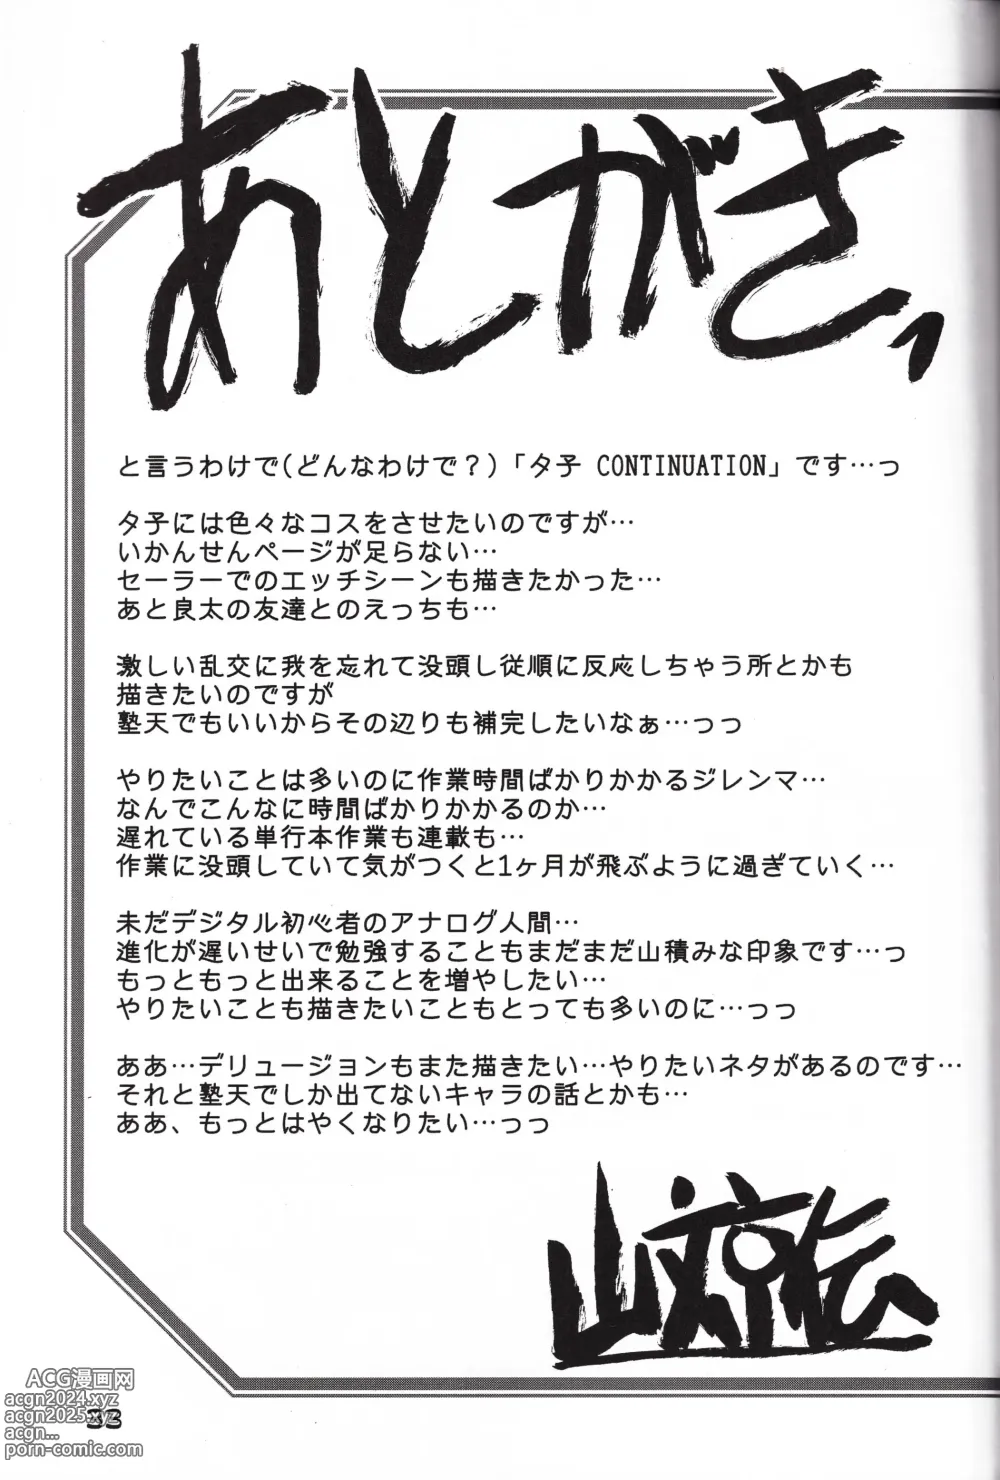 あとがき、
と言うわけで(どんなわけで？)「タ子 CONTINUATION」です…っ
タ子には色々なコスをさせたいのですが…
いかんせんページが足らない…
セーラーでのエッチシーンも描きたかった…
あと良太の友達とのえっちも…
激しい乱交に我を忘れて没頭し従順に反応しちゃう所とかも
描きたいのですが
塾天でもいいからその辺りも補完したいなぁ…っっ
やりたいことは多いのに作業時間ばかりかかるジレンマ…
なんでこんなに時間ばかりかかるのか…
遅れている単行本作業も連載も…
作業に没頭していて気がつくと1ヶ月が飛ぶように過ぎていく…
未だデジタル初心者のアナログ人間…
進化が遅いせいで勉強することもまだまだ山積みな印象です…っ
もっともっと出来ることを増やしたい…
やりたいことも描きたいこともとっても多いのに…っっ
ああ…デリュージョンもまた描きたい…やりたいネタがあるのです…
それと塾天でしか出てないキャラの話とかも…
ああ、もっとはやくなりたい…っっ
山文京伝
ACG漫画网
acgn2024.xyz
acgn2025.xyz
acgn...
33
porn-comic.com